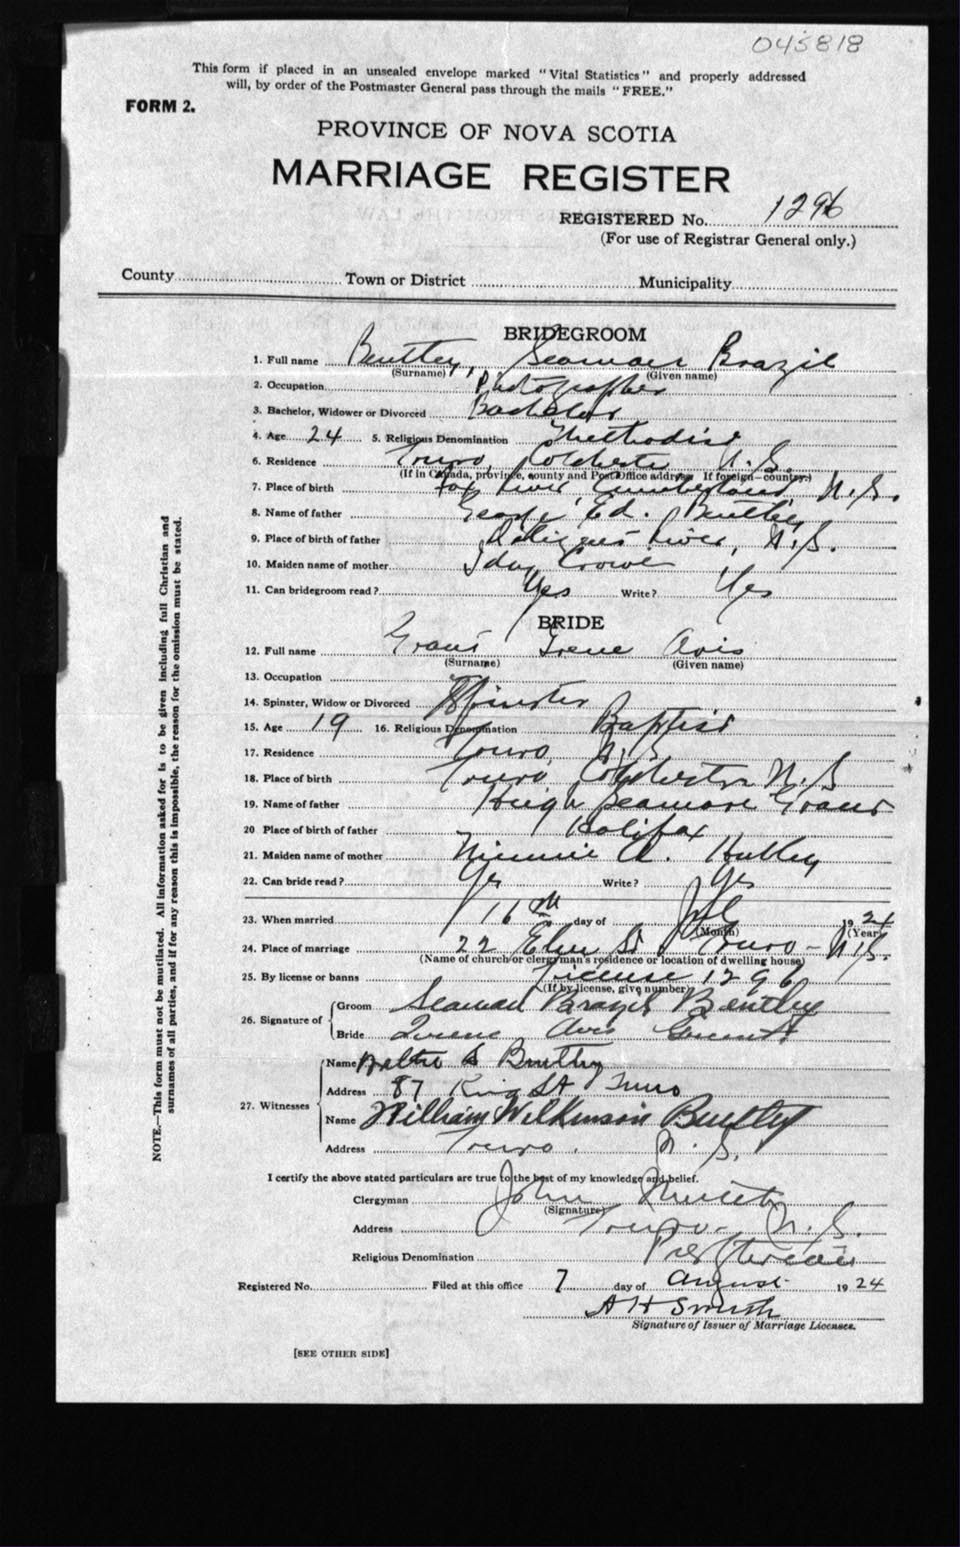 045818
This form if placed in an unsealed envelope marked "Vital Statistics" and properly addressed
will, by order of the Postmaster General pass through the mails "FREE."
FORM 2.
PROVINCE OF NOVA SCOTIA
MARRIAGE REGISTER
REGISTERED No. 1296
(For use of Registrar General only.)
County Town or District Municipality
BRIDEGROOM
1. Full name Bentley, Seamoer Brazil
(Surname) (Given name)
2. Occupation Photographer
3. Bachelor, Widower or Divorced Bachelor
4. Age 24 5. Religious Denomination Methodist
6. Residence Truro, Colchester N.S.
(If in Canada, province, county and Post Office address If foreign—country.)
7. Place of birth Fox River, Cumberland N.S.
8. Name of father George Ed. Bentley
9. Place of birth of father River, N.S.
10. Maiden name of mother Ida Crowe
11. Can bridegroom read? Yes Write? Yes
BRIDE
12. Full name Grant Irene Avis
(Surname) (Given name)
13. Occupation
14. Spinster, Widow or Divorced Spinster
15. Age 19 16. Religious Denomination Baptist
17. Residence Truro, N.S
18. Place of birth Truro Colchester N.S
19. Name of father Hugh Seamore Grant
20 Place of birth of father Halifax
21. Maiden name of mother Minnie A. Hubley
22. Can bride read? Yes Write? Yes
23. When married 16th day of Jul 1924
(Month) (Year)
24. Place of marriage 22 Elm St Truro - N.S.
(Name of church or clergyman's residence or location of dwelling house)
25. By license or banns License 1296
(If by license, give number)
26. Signature of Groom Seaman Brazil Bentley
Bride Irene Avis Grant
27. Witnesses Name Bentley
Address 87 King St Truro
Name William Wilkinson Bentley
Address Truro. N.S.
I certify the above stated particulars are true to the best of my knowledge and belief.
Clergyman John
(Signature)
Address Truro - N.S.
Religious Denomination Presbyterian
Registered No. Filed at this office 7 day of August 1924
A H Smith
Signature of Issuer of Marriage Licenses.
[SEE OTHER SIDE]
NOTE.—This form must not be mutilated. All information asked for is to be given including full Christian and
surnames of all parties, and if for any reason this is impossible, the reason for the omission must be stated.